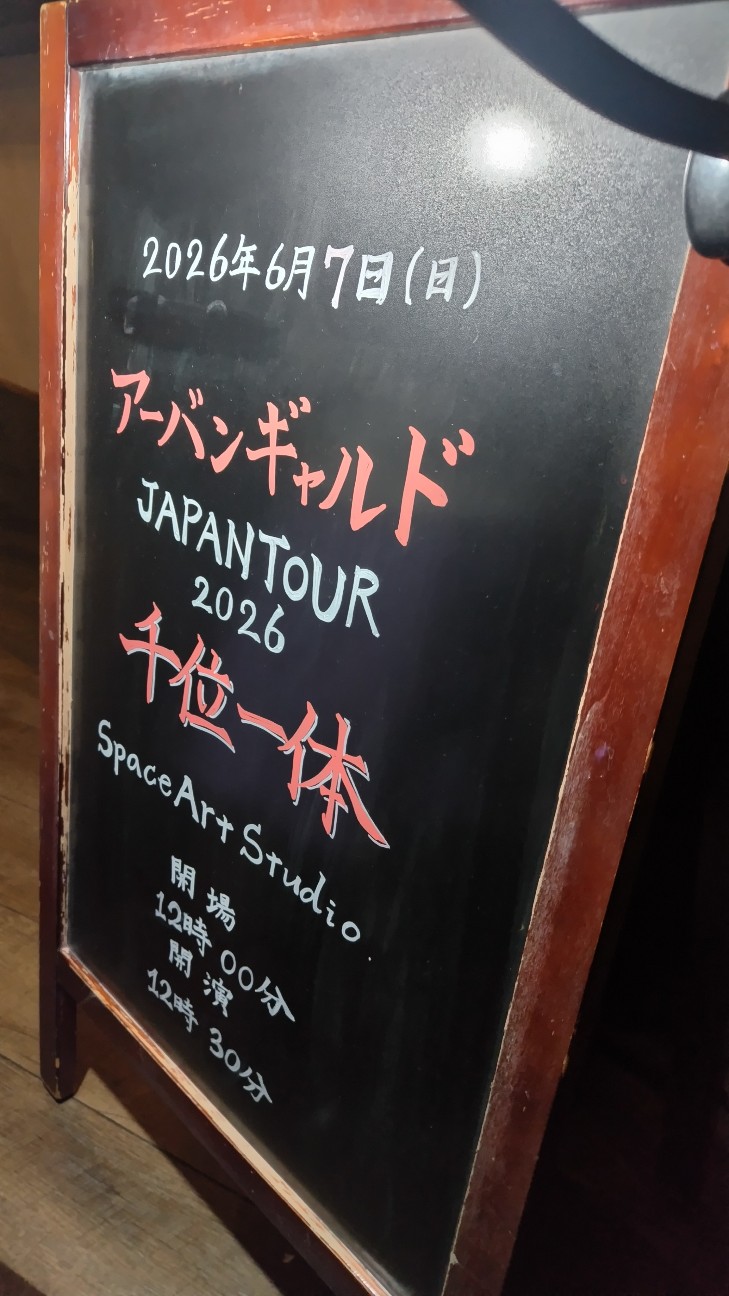 2026年6月7日(日)
アーバンギャルド
JAPAN TOUR
2026
千位一体
Space Art Studio
開場
12時00分
開演
12時30分